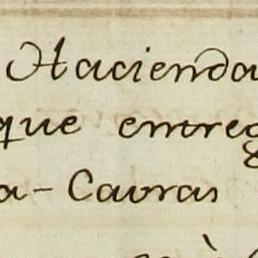 Hacienda
que entreg
a - Cavras